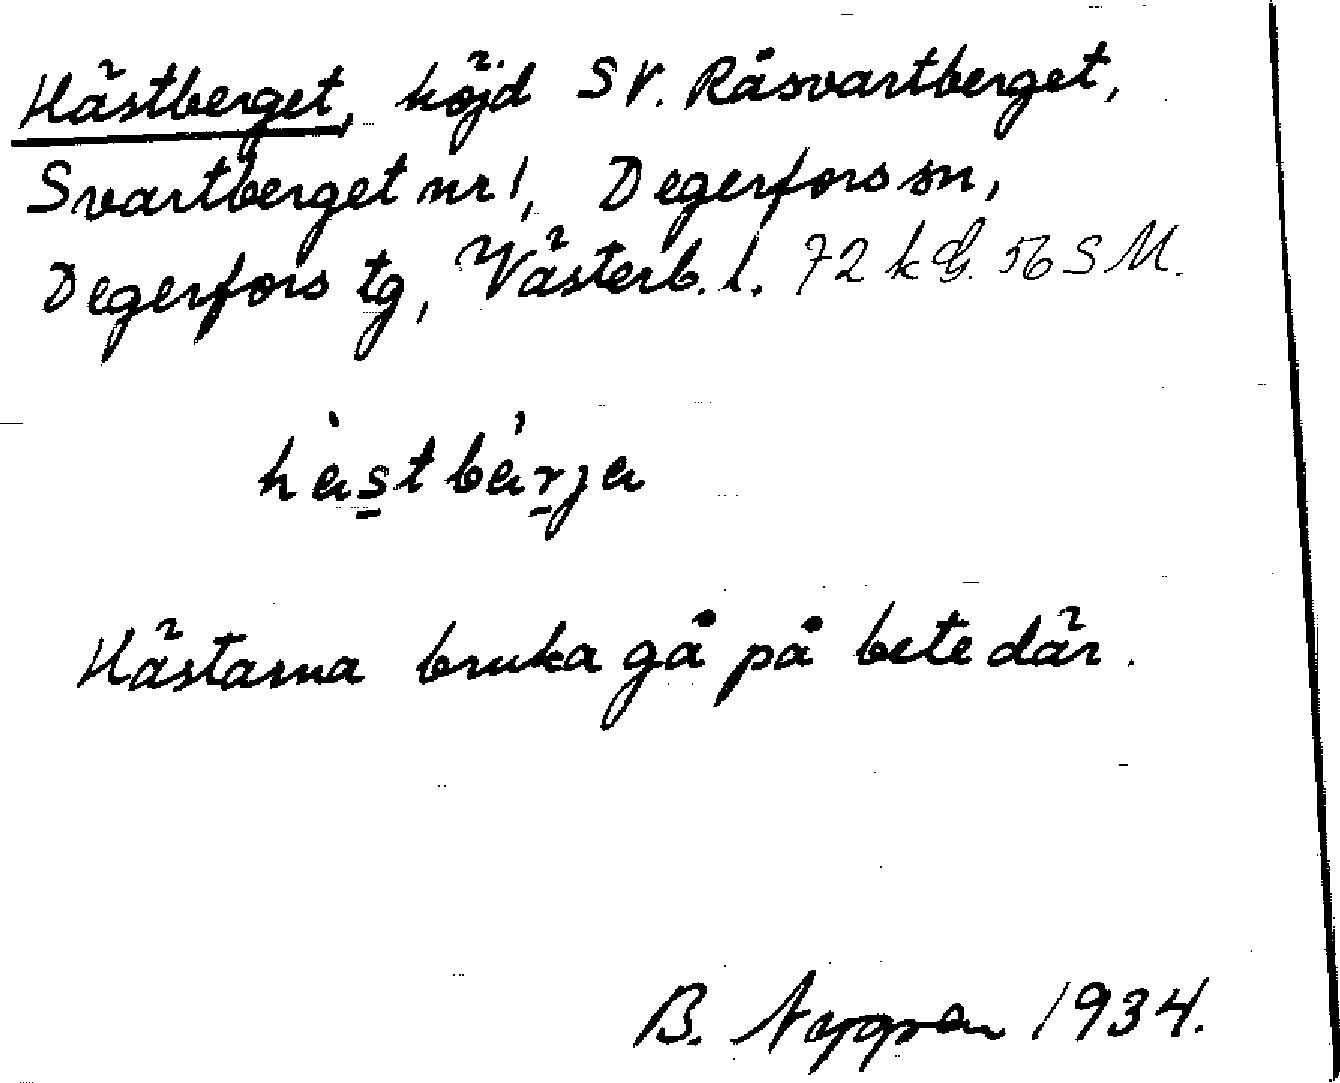 Hästberget, höjd SV. Råsvartberget,
Svartberget nr 1, Degerfors sn,
Degerfors tg, Västerb. l. 72 k 56 SM.
hàstbárja
Hästarna bruka gå på bete där.
B. 1934.